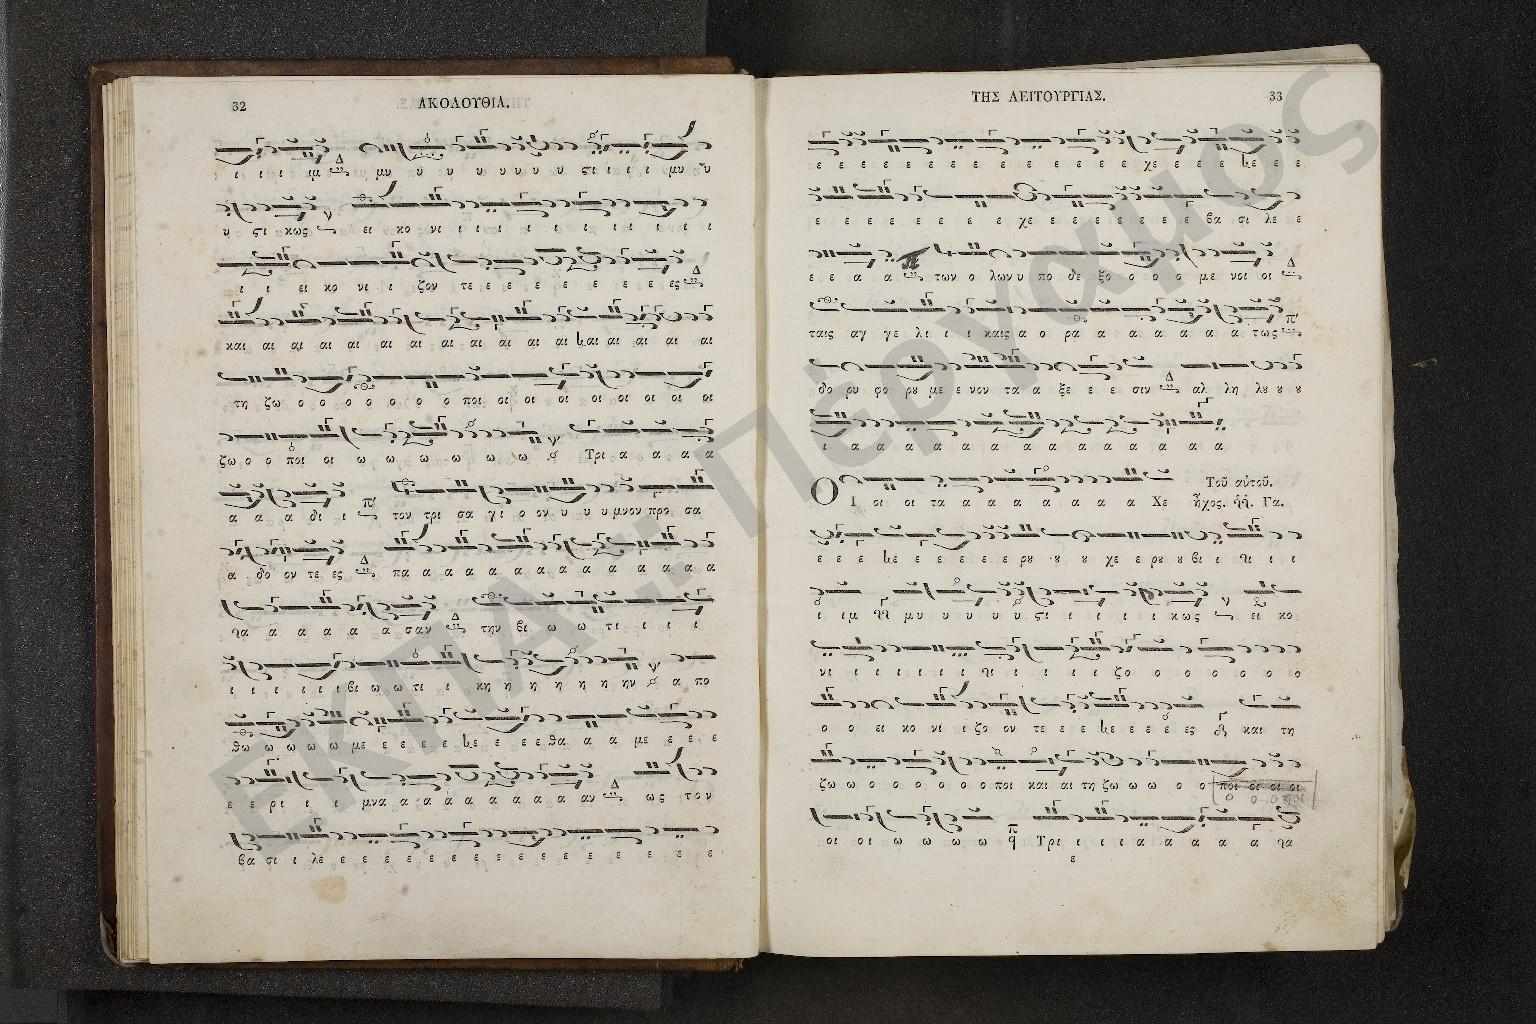 32
ΑΚΟΛΟΥΘΙΑ.
ι ι ι ι ιμ μυ υ υ υ υ υ υ υ υ ςι ι ι ι μυ υ
υ ςι κως ει κο νι ι ι ι ι ι ι ι ι ι ι
ι ι ει κο νι ι ζον τε ε ε ε ε ε ε ε ε ες
και αι αι αι αι αι αι αι αι αι αι αι αι αι αι αι αι
τη ζω ο ο ο ο ο ο ο ποι οι οι οι οι οι οι οι οι
ζω ο ο ποι οι ω ω ω ω ω ω Τρι α α α α
α α α δι ι τον τρι σα γι ο ον υ υ υ μνον προ σα
α δο ον τε ες πα α α α α α α α α α α α α
α α α α α σαν την βι ω ω τι ι ι ι
ι ι ι ι ι ι βι ω ω τι ι κη η η η η η ην α πο
θω ω ω ω ω με ε ε ε ε ε ε ε ε θα α α με ε ε ε
ε ε ρι ι ι μνα α α α α α α α α αν ως τον
βα σι ι λε ε ε ε ε ε ε ε ε ε ε ε ε ε ε
ΤΗΣ ΛΕΙΤΟΥΡΓΙΑΣ.
33
ε ε ε ε ε ε ε ε ε ε ε ε ε ε ε χε ε ε ε ε ε ε
ε ε ε ε ε ε ε ε ε χε ε ε ε ε ε ε ε βα σι λε ε
ε ε α α των ο λων υ πο δε ξο ο ο ο με νοι οι
ταις αγ γε λι ι ι καις α ο ρα α α α α α α τως
δο ρυ φο ρυ με ε νον τα α ξε ε ε σιν αλ λη λυ υ υ
ι α α α α α α α α α α α α α
Ο Ι οι οι τα α α α α α α α Χε
Τοῦ αὐτοῦ.
ἦχος. Γα.
ε ε ε ε ε ε ε ε ρυ υ υ χε ε ρυ υ βι ι ι ι
ι ιμ μυ υ υ υ υ ςι ι ι ι ι κως ει κο
νι ι ι ι ι ι ι ι ι ι ζο ο ο ο ο ο ο
ο ο ει κο νι ι ζο ον τε ε ε ε ε ε ε ες και τη
ζω ω ο ο ο ο ο ο ποι και αι τη ζω ω ω ο ο ποι οι οι οι
οι οι ω ω ω ω Τρι ι ι ι α α α α α
ε
ΕΚΠΑ:: Πέργαμος